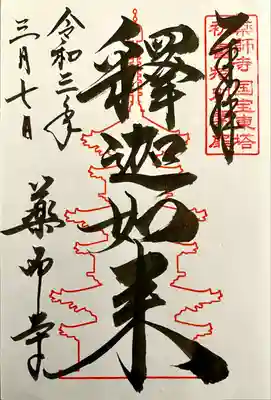 奉拝
薬師寺国宝東塔
釋迦如来
令和三年
三月七日
薬師寺